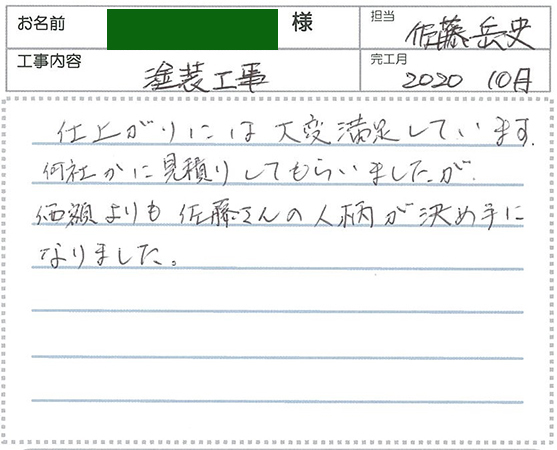 お名前 様 担当 佐藤岳史
工事内容 塗装工事 完工月 2020 10月
仕上がりには大変満足しています.
何社かに見積りしてもらいましたが.
価額よりも佐藤さんの人柄が決め手に
なりました。